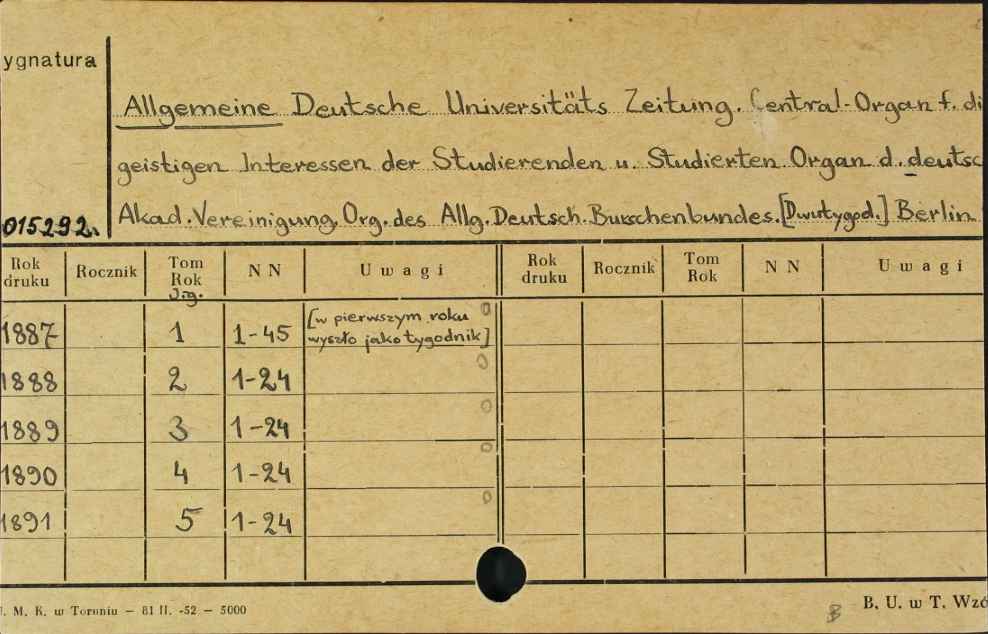 ygnatura
Allgemeine Deutsche Universitäts Zeitung. Central-Organ f. di
geistigen Interessen der Studierenden u. Studierten Organ d. deutsc
015292. Akad. Vereinigung, Org. des Allg. Deutsch. Burschenbundes. [Dwutygod.] Berlin
Rok druku Rocznik Tom Rok Jg. N N Uwagi Rok druku Rocznik Tom Rok N N Uwagi
1887 1 1-45 [w pierwszym roku
wyszło jako tygodnik]
1888 2 1-24
1889 3 1-24
1890 4 1-24
1891 5 1-24
. M. K. w Toruniu — 81 II. -52 — 5000
B. U. w T. Wzó